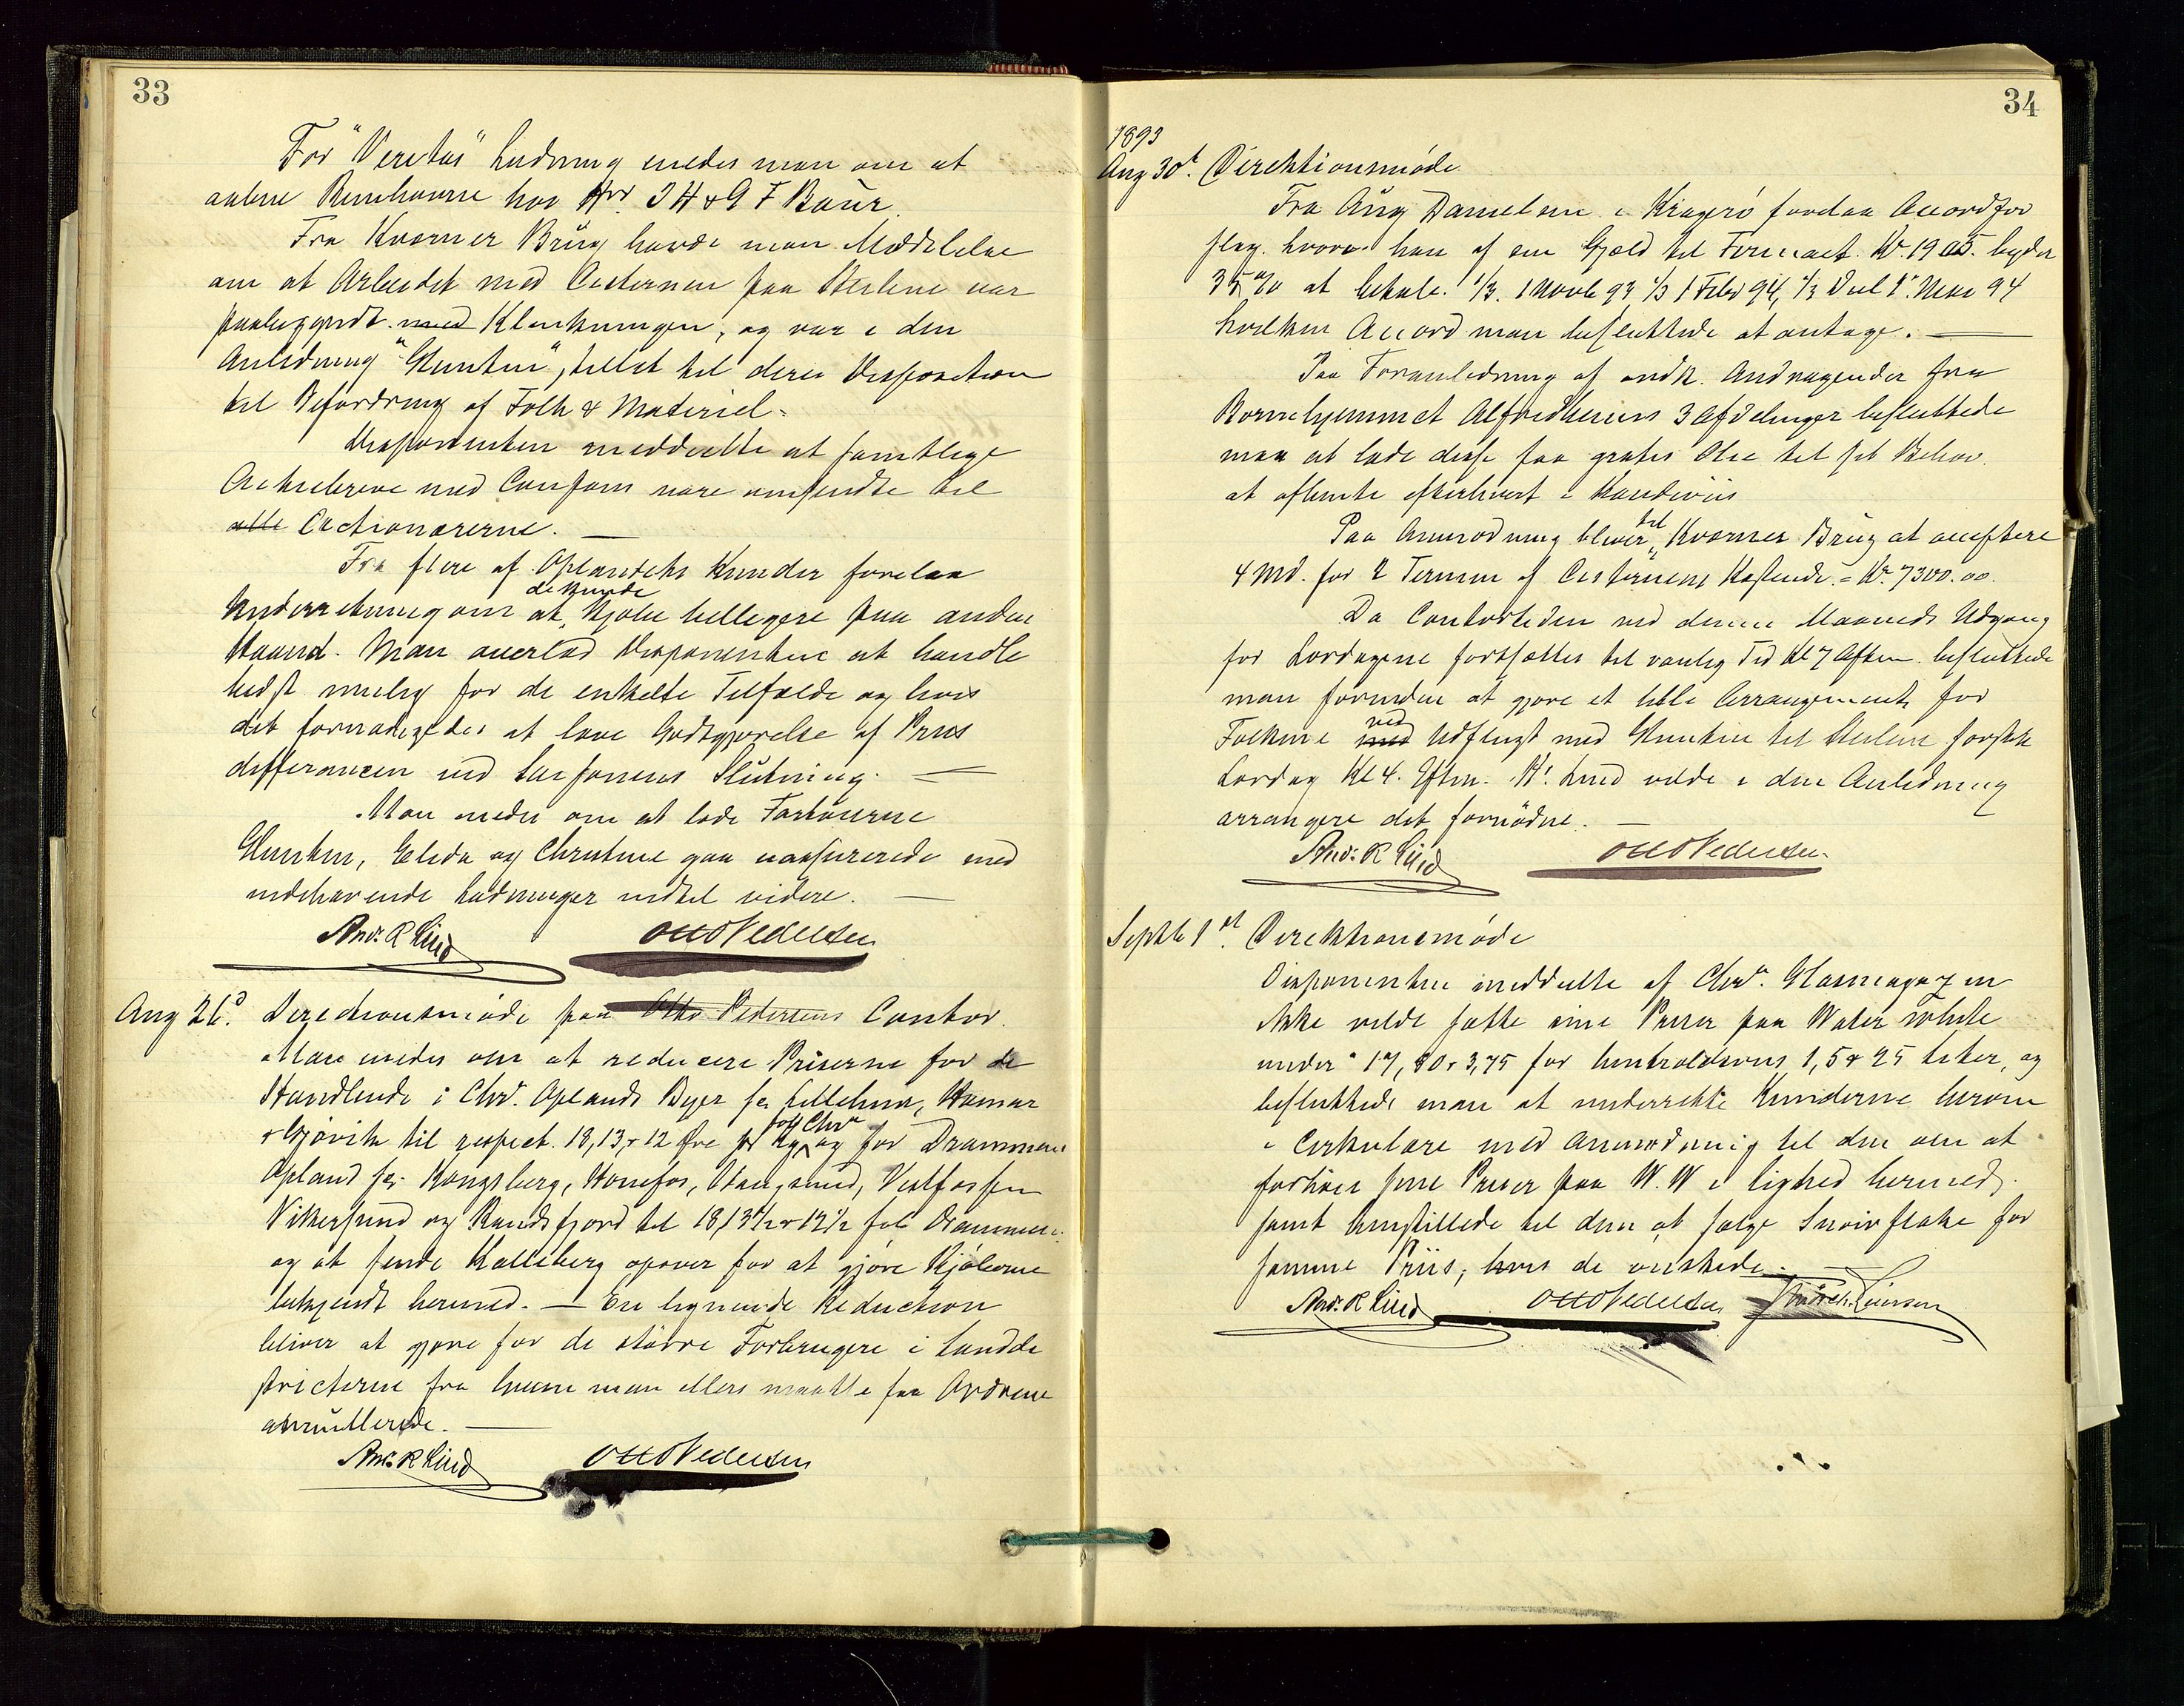 33
For "Veritas" Ladning enedes man om at
aabne Remburse hos Hrr. J H & G F Baür.
Fra Kværner Brüg havde man Meddelelse
om at Arbeidet med Cisternen paa Steilene var
paabegyndt med Klinkningen, og var i den
Anledning "Glunten", stillet til deres Disposition
til Befordring af Folk & Materiel.
Disponenten meddeelte at samtlige
Actiebreve med Coupons vare omsendte til
alle Actionærerne. —
Fra flere af Oplandets Kunder forelaa
de kunde
Underretning om at kjöbe billigere paa anden
Haand. Man overlod Disponenten at handle
bedst mulig for de enkelte Tilfælde og hvis
det fornødigedes at love Godtgjørelse af Priis
differancen ved Saisonens Slutning. —
Man enedes om at lade Fartöierne
Glunten, Elida og Christine gaa uassurerede med
indehavende Ladninger indtil videre. —
And. R Lind Otto Pedersen
Aug 26. Directionsmöde paa Otto Pedersens Contor.
Man enedes om at reducere Priserne for de
Handlende i Chr. Oplands Byer fx Lillehmr, Hamar
fob Chra
& Gjövik til respect. 18, 13, & 12 Øre pr Kg og for Drammens
Opland fx Kongsberg, Hönefos, Haugsund, Vestfossen
Vikersund og Randsfjord til 18, 13½ & 12½ fob Drammen
og at sende Kolleberg opover for at gjöre Kjöberne
bekjendt hermed. — En lignende Reduction
bliver at gjöre for de större Forbrugere i Landdi
stricterne fra hvem man ellers maatte faa Ordrene
annullerede. —
And. R Lind Otto Pedersen
34
1893
Aug 30t. Direktionsmöde
Fra Aug Danielsen i Kragerö forelaa Accordfor
slag, hvori han af sin Gjæld til Firmaet Kr. 1905. byder
35% at betale ⅓ 1 Novb 93 ⅓ 1 Febr 94, ⅓ Deel 1. Mai 94
hvilken Accord man besluttede at antage. —
Paa Foranledning af indk. Andragender fra
Bornehjemmet Alfredheims 3 Afdelinger besluttede
man at lade disse faa gratis Olie til sit Behov
at afhente efterhvert i Kandeviis
til
Paa Anmodning bliver Kværner Brüg at acceptere
4 Md. for 2 Termin af Cisternens Kostende = Kr. 7300.00.
Da Contortiden ved denne Maaneds Udgang
for Lördagene fortsættes til vanlig Tid Kl 7 Aften besluttede
man forinden at gjøre et lille Arrangement for
ved
Folkene med Udflugt med Glunten til Steilene förstk
Lördag Kl 4. Eftm. Hr. Lind vilde i den Anledning
arrangere det fornödne. —
And. R Lind Otto Pedersen
Septb 1st. Direktionsmöde
Disponenten meddeelte at Chra. Glasmagazin
ikke vilde sætte sine Priser paa Water white
under 17, 80 & 3,75 for henholdsviis 1, 5 & 25 Liter, og
besluttede man at underrette Kunderne herom
i Cirkulære med Anmodning til dem om at
forhöie sine Priser paa W.W i lighed hermed
samt henstillede til dem at sælge Snowflake for
samme Priis, hvis de önskede. —
And. R Lind Otto Pedersen